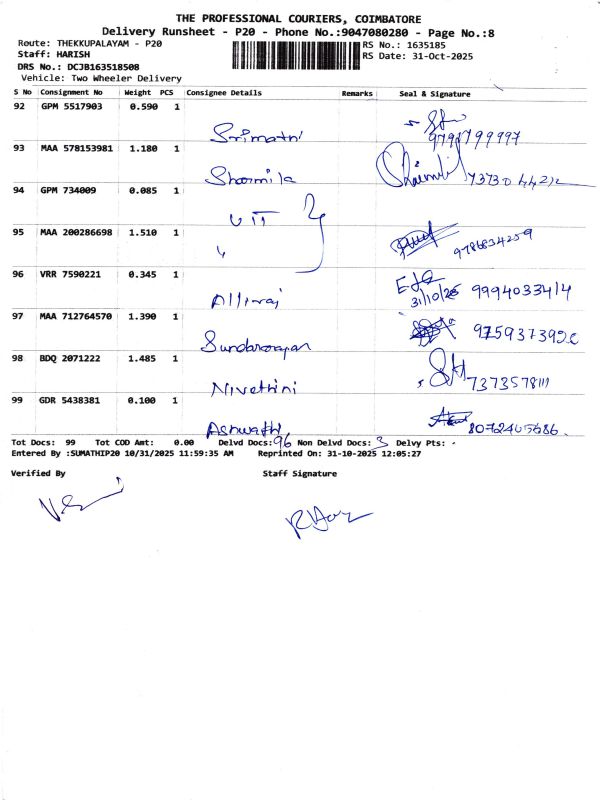 THE PROFESSIONAL COURIERS, COIMBATORE
Delivery Runsheet - P20 - Phone No.:9047080280 - Page No.:8
Route: THEKKUPALAYAM - P20 RS No.: 1635185
Staff: HARISH RS Date: 31-Oct-2025
DRS No.: DCJB163518508
Vehicle: Two Wheeler Delivery
S No Consignment No Weight PCS Consignee Details Remarks Seal & Signature
92 GPM 5517903 0.590 1
Srimathi 9791799997
93 MAA 578153981 1.180 1
Sharmila
94 GPM 734009 0.085 1
VIT
95 MAA 200286698 1.510 1
9786834259
96 VRR 7590221 0.345 1
Alliraj 31/10/25 9994033414
97 MAA 712764570 1.390 1
Sundarrajan
98 BDQ 2071222 1.485 1
Nivethini 7373578111
99 GDR 5438381 0.100 1
Ashwathi 8072405686.
Tot Docs: 99 Tot COD Amt: 0.00 Delvd Docs: 96 Non Delvd Docs: 3 Delvy Pts: -
Entered By :SUMATHIP20 10/31/2025 11:59:35 AM Reprinted On: 31-10-2025 12:05:27
Verified By Staff Signature